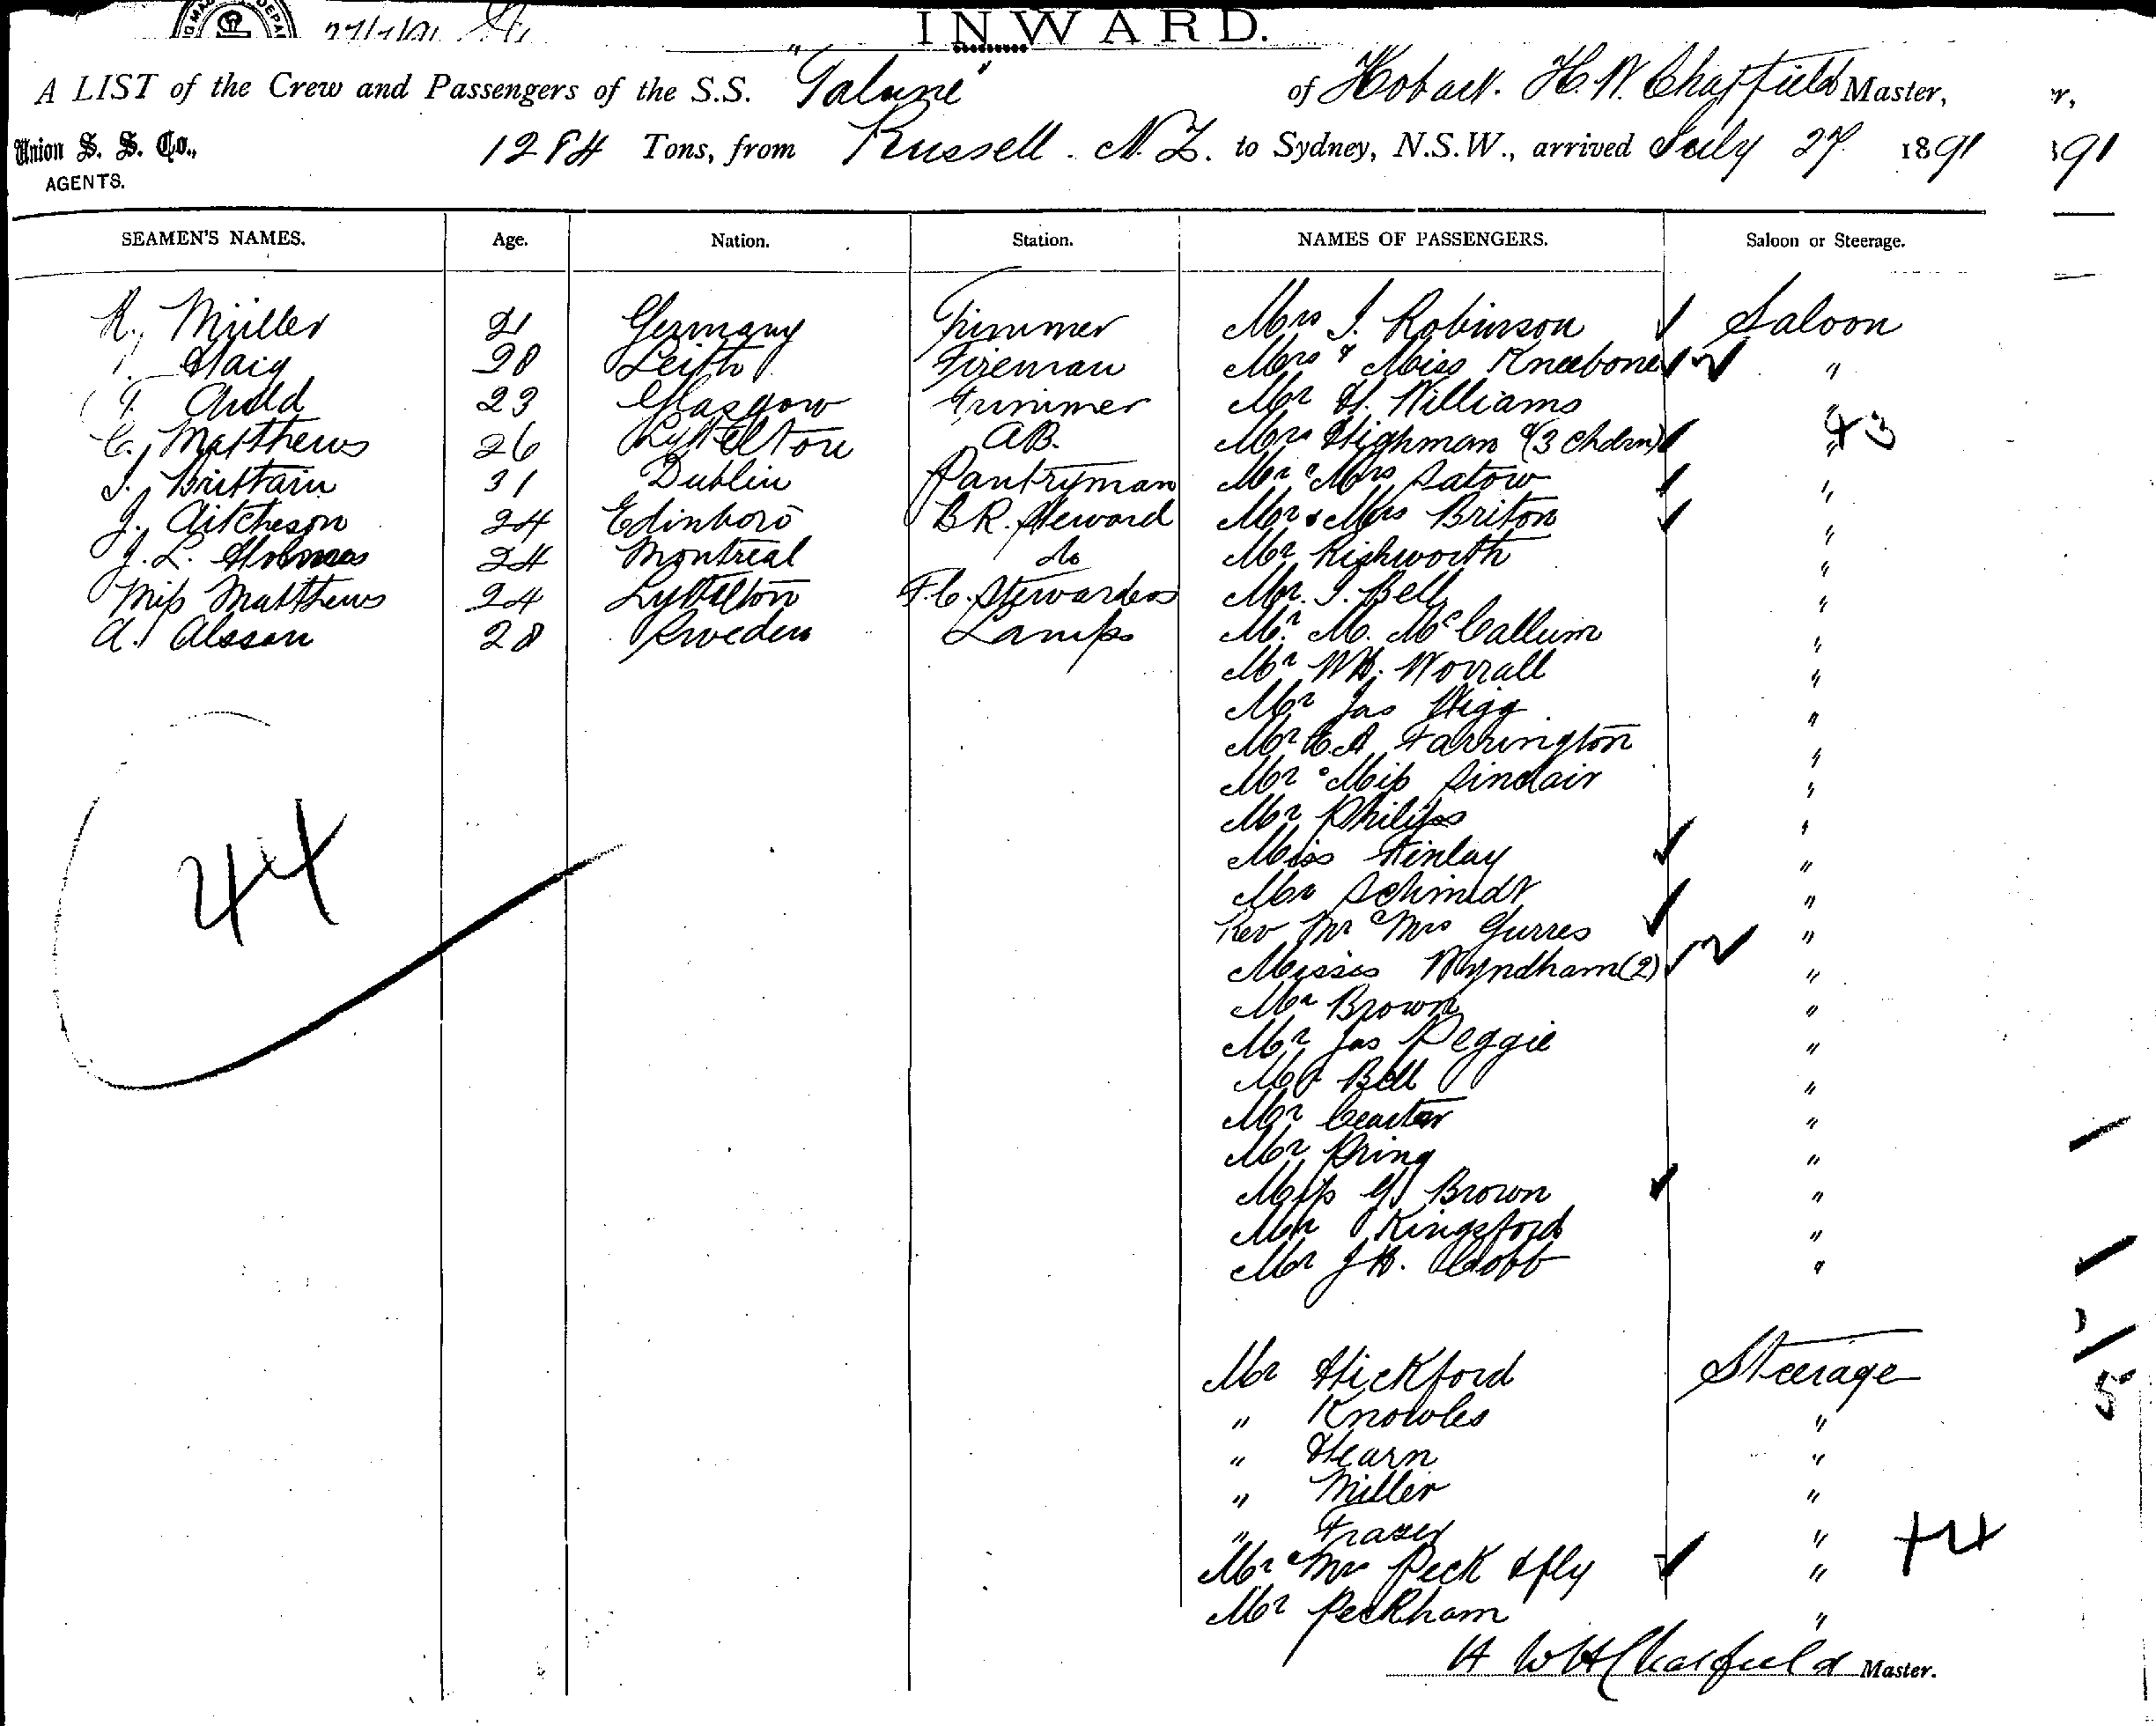 INWARD.
A LIST of the Crew and Passengers of the S.S. "Talune" of Hobart. H. W. Chatfield Master,
Union S. S. Co., 1284 Tons, from Russell. N. Z. to Sydney, N.S.W., arrived July 27 1891
AGENTS.
SEAMEN'S NAMES. Age. Nation. Station. NAMES OF PASSENGERS. Saloon or Steerage.
R. Müller 21 Germany Trimmer Mrs J. Robinson Saloon
Haig 28 Leith Fireman Mrs & Miss Kneebone "
T. Auld 23 Glasgow Trimmer Mr H. Williams "
C. Matthews 26 Lyttelton A.B. Mrs Highman & (3 chdrn) " 43
J. Brittain 31 Dublin Pantryman Mr & Mrs Satow "
J. Aitcheson 24 Edinboro B.R. Steward Mr & Mrs Briton "
J. L. Holmes 24 Montreal do Mr Rishworth "
Miss Matthews 24 Lyttelton F.C. Stewardess Mr. J. Bell "
A. Alsson 28 Sweden Lamps Mr. M. McCallum "
Mr W.H. Worrall "
Mr Jas Higg "
Mr C A Farrington "
Mr & Miss Sinclair "
Mr Philips "
Miss Finlay "
Mr Schmidt "
Rev Mr & Mrs Gurres "
Misses Wyndham (2) "
Mr Brown "
Mr Jas Peggie "
Mr Bell "
Mr "
Mr Pring "
Miss G Brown "
Mr Kingsford "
Mr J H. Cobb "
44
Mr Hickford Steerage
" Knowles "
" Hearn "
" Miller "
" Fraser "
Mr & Mrs Peck & fly " +4
Mr Peckham "
H W H Chatfield Master.